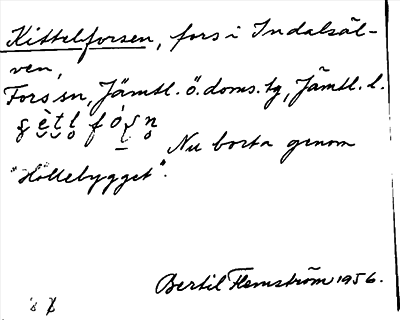 Kittelforsen, fors i Indalsäl-
ven,
Fors sn, Jämtl. ö. doms. tg, Jämtl. l.
Nu borta genom
"Hollebygget".
Bertil Flemström 1956.